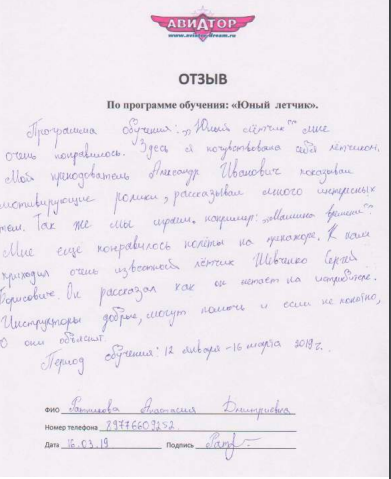 АВИАТОР
www.aviator-dream.ru
ОТЗЫВ
По программе обучения: «Юный летчик».
Программа обучения: „Юный лётчик“ мне
очень понравилось. Здесь я почувствовала себя лётчиком.
Мой преподователь Александр Иванович показывал
мотивирующие ролики, рассказывал много интересных
тем. Так же мы играем. например: „Машина времени“.
Мне еще понравилось полёты на тренажоре. К нам
приходил очень известный лётчик Шевченко Сергей
Борисович. Он рассказал как он летает на истребителе.
Инструкторы добрые, могут помочь и если не понятно,
О они объяснят.
Период обучения: 12 января - 16 марта 2019 г.
ФИО Анастасия Дмитриевна
Номер телефона 89776609252
Дата 16.03.19 Подпись